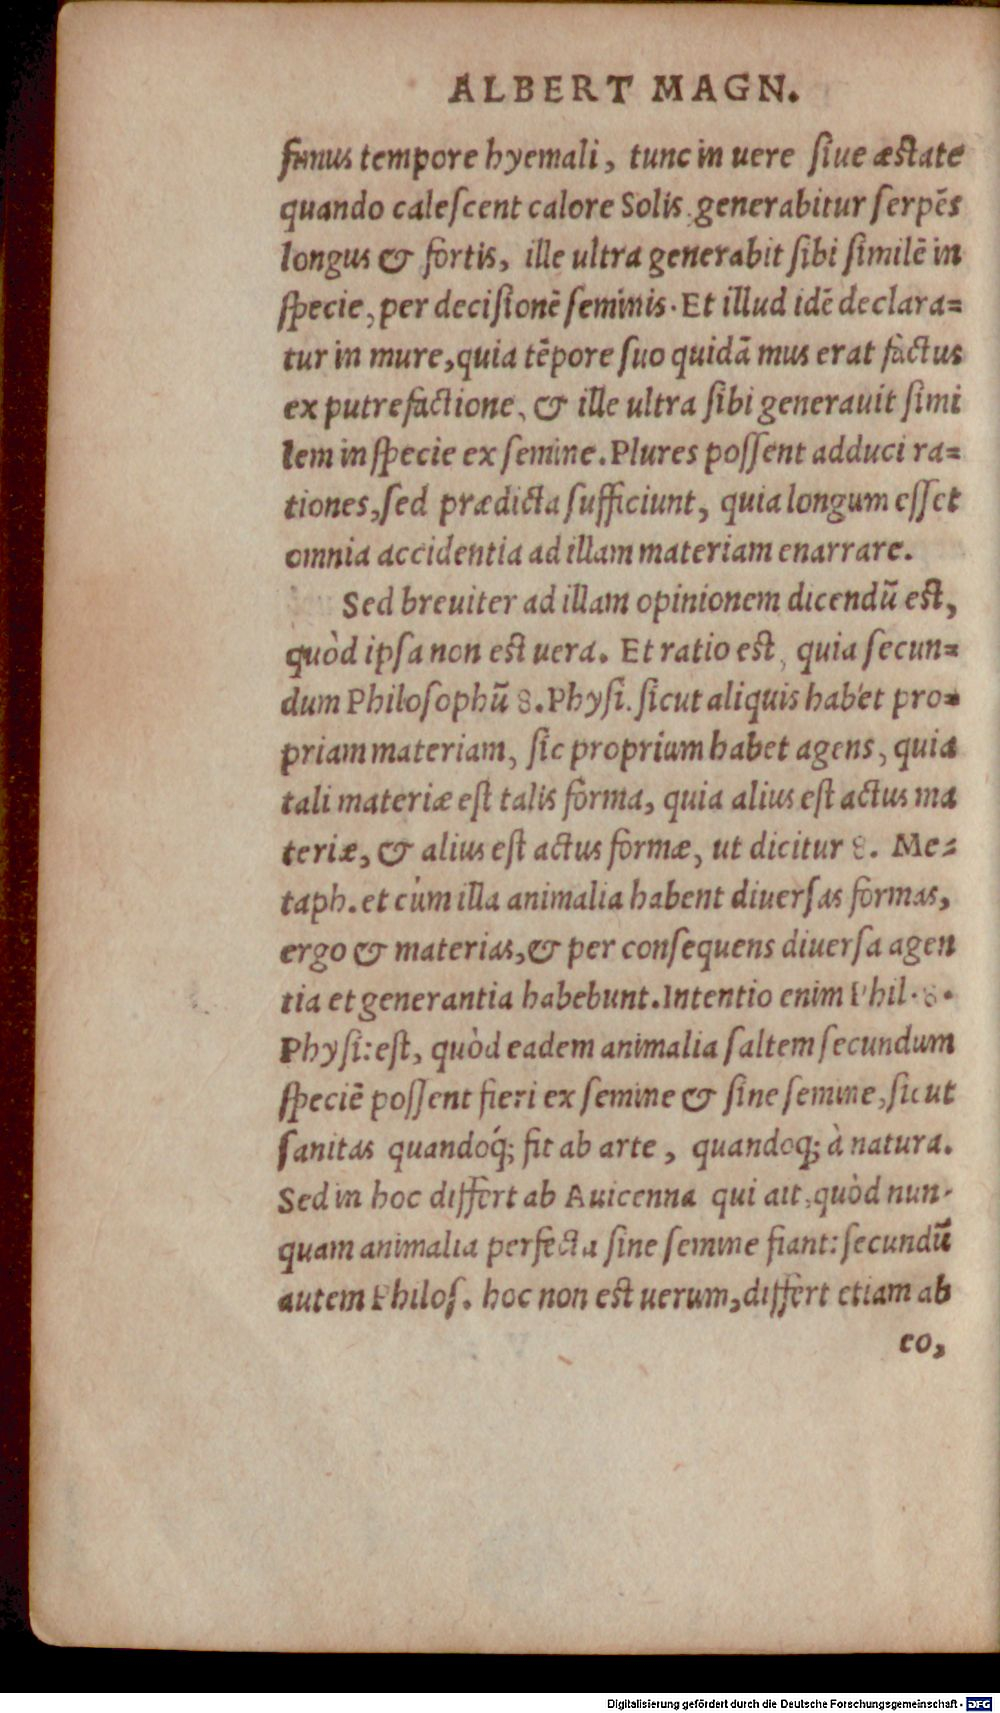 ALBERT MAGN.
fimus tempore hyemali, tunc in uere siue æstate
quando calescent calore Solis generabitur serpẽs
longus & fortis, ille ultra generabit sibi similẽ in
specie, per decisionẽ seminis. Et illud idẽ declara=
tur in mure, quia tẽpore suo quidã mus erat factus
ex putrefactione, & ille ultra sibi generauit simi
lem in specie ex semine. Plures possent adduci ra=
tiones, sed prædicta sufficiunt, quia longum esset
omnia accidentia ad illam materiam enarrare.
Sed breuiter ad illam opinionem dicendũ est,
quòd ipsa non est uera. Et ratio est, quia secun=
dum Philosophũ 8. Physi. sicut aliquis habet pro=
priam materiam, sic proprium habet agens, quia
tali materiæ est talis forma, quia alius est actus ma
teriæ, & alius est actus formæ, ut dicitur 8. Me=
taph. et cùm illa animalia habent diuersas formas,
ergo & materias, & per consequens diuersa agen
tia et generantia habebunt. Intentio enim Phil. 8.
Physi: est, quòd eadem animalia saltem secundum
speciẽ possent fieri ex semine & sine semine, sicut
sanitas quandoq́; fit ab arte, quandoq; à natura.
Sed in hoc differt ab Auicenna qui ait, quòd nun-
quam animalia perfecta sine semine fiant: secundũ
autem Philos. hoc non est uerum, differt etiam ab
eo,
Digitalisierung gefördert durch die Deutsche Forschungsgemeinschaft - DFG